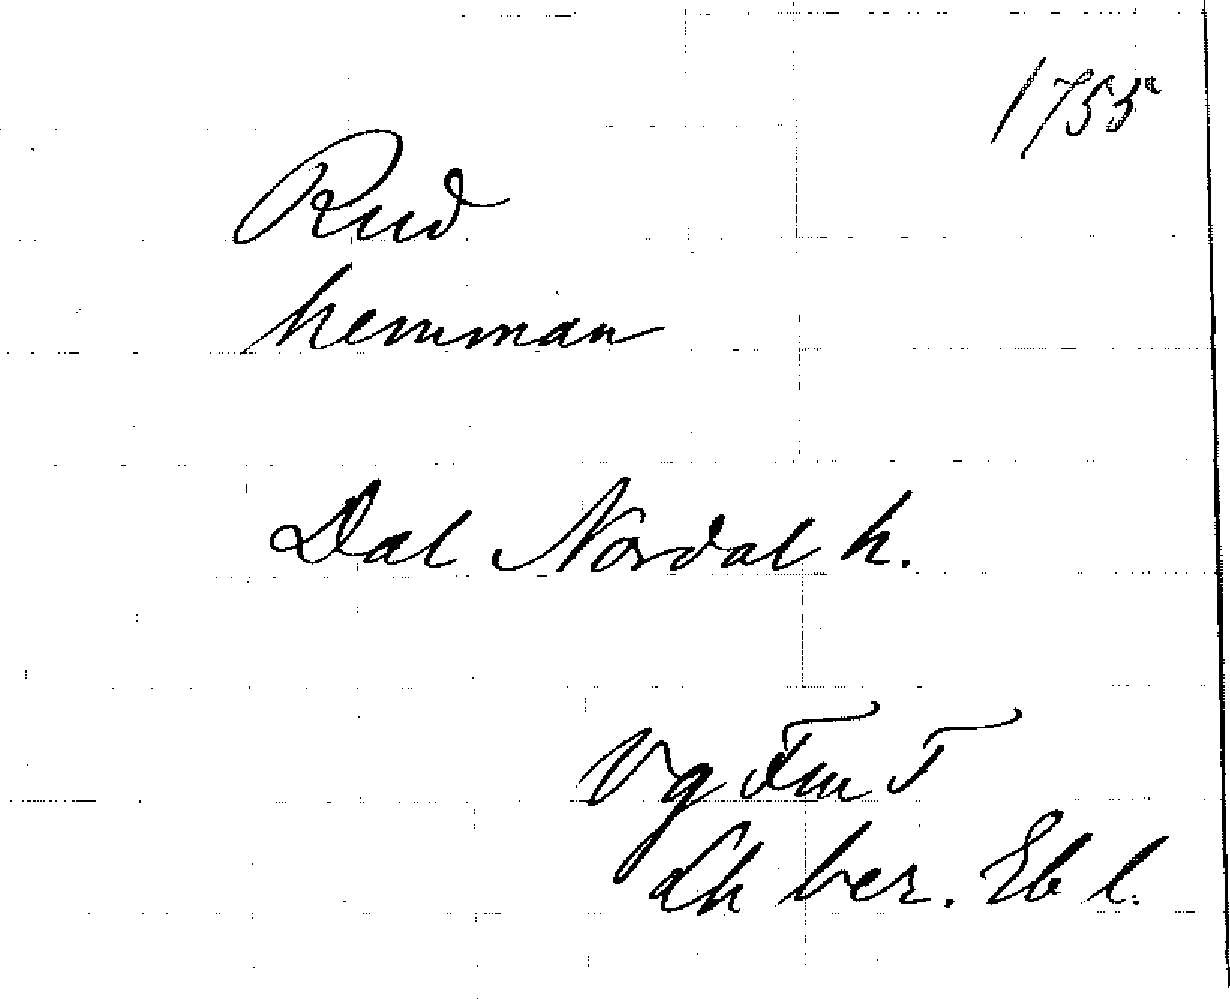 1755
Rud
hemman
Dal Nordal h.
Vg Fm F
Lh ber. Eb l.